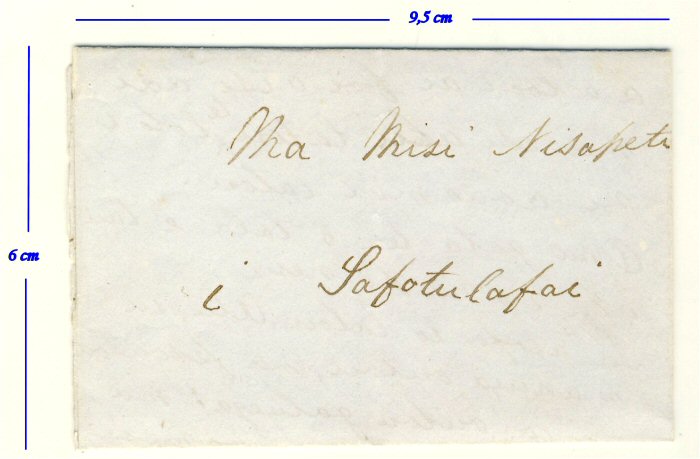 9,5 cm
6 cm
Ma Misi Nisapeti
i Safotulafai